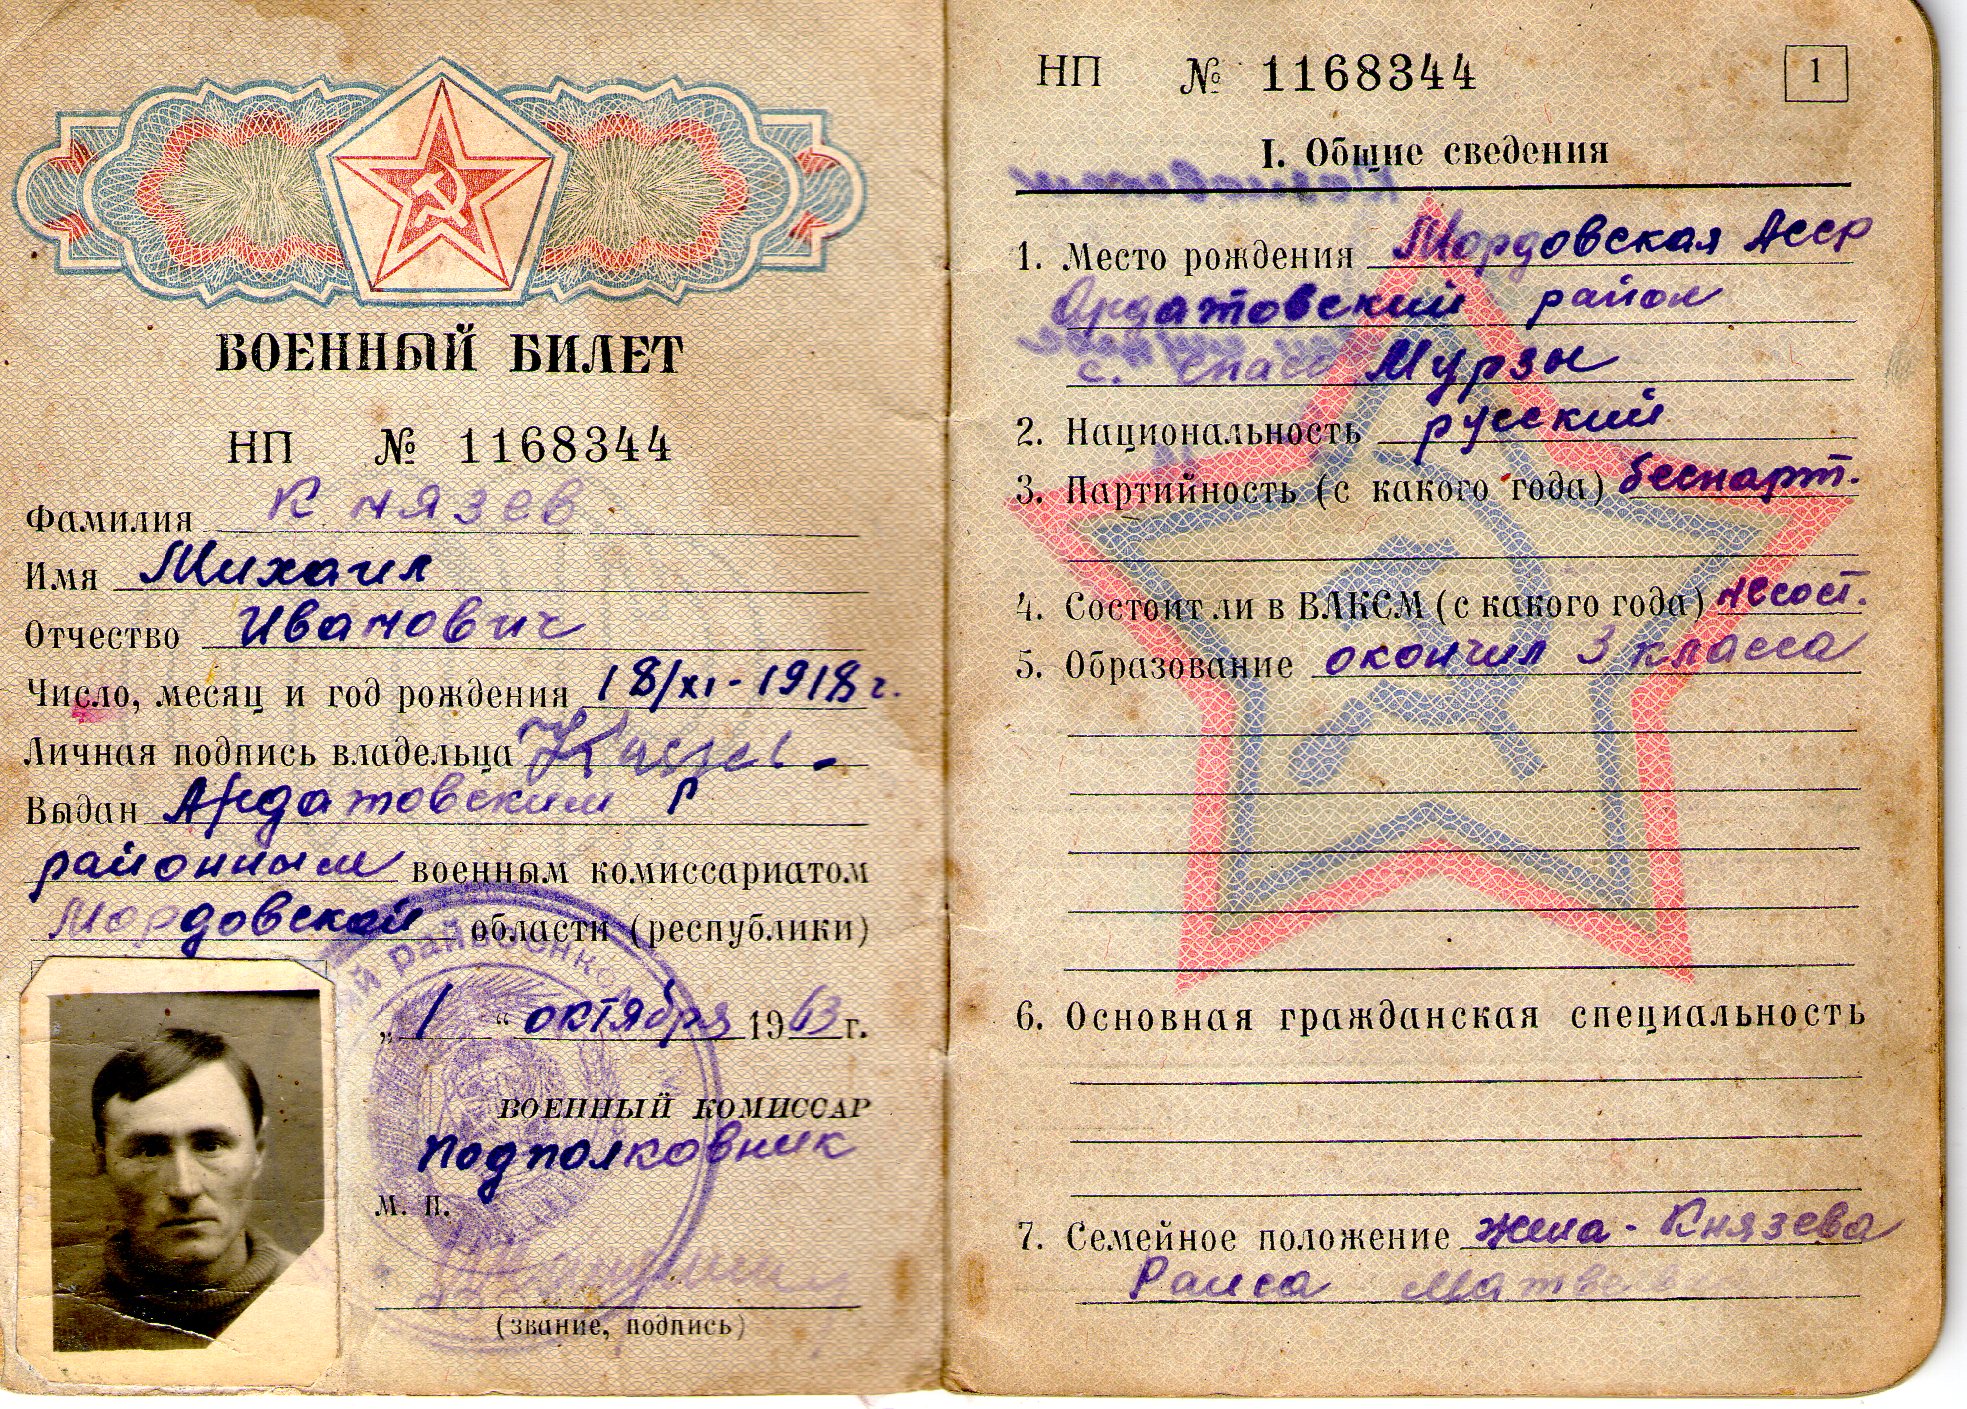 ВОЕННЫЙ БИЛЕТ
НП № 1168344
Фамилия Князев
Имя Михаил
Отчество Иванович
Число, месяц и год рождения 18/XI-1918 г.
Личная подпись владельца
Выдан Ардатовским Р
районным военным комиссариатом
Мордовской области (республики)
„1“ октября 1963 г.
ВОЕННЫЙ КОМИССАР
подполковник
М. П.
(звание, подпись)
НП № 1168344
1
I. Общие сведения
1. Место рождения Мордовская Асср
Ардатовский район
с. Спасс Мурзы
2. Национальность русский
3. Партийность (с какого года) беспарт.
4. Состоит ли в ВЛКСМ (с какого года) несост.
5. Образование окончил 3 класса
6. Основная гражданская специальность
7. Семейное положение жена - Князева
Раиса Матве